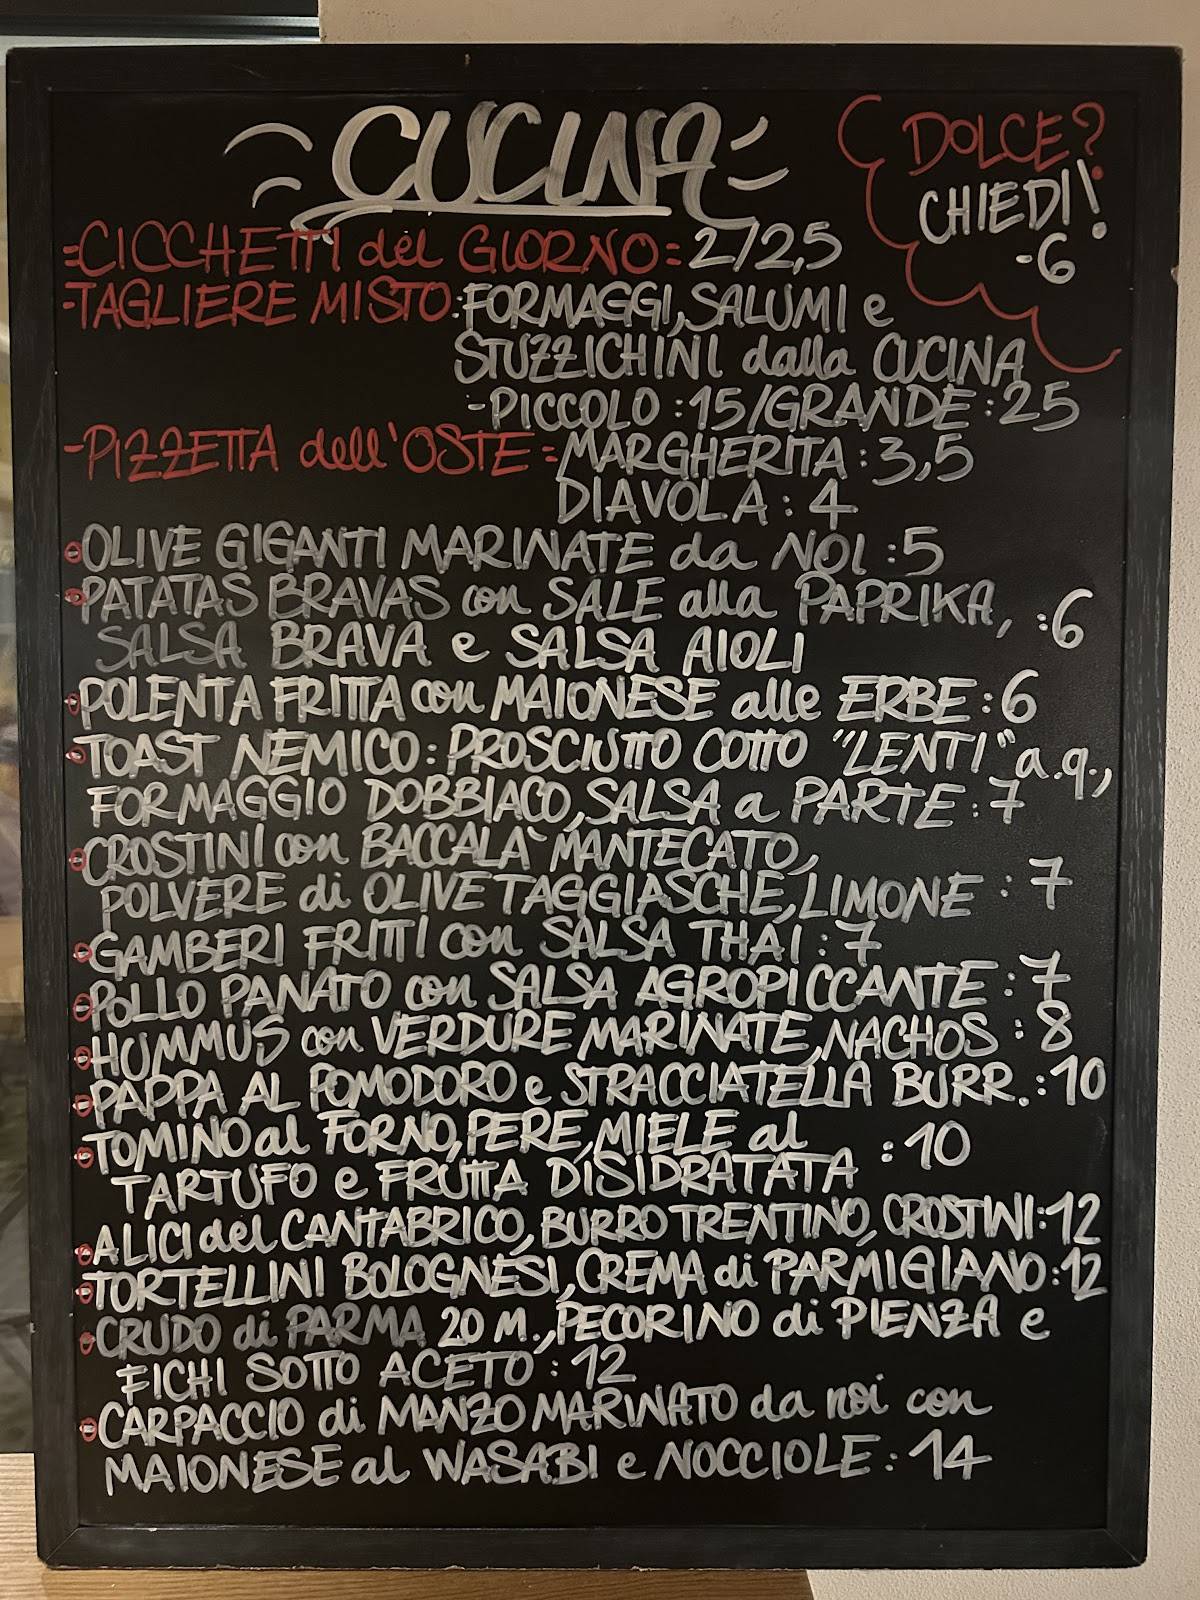 CUCINA
DOLCE?
CHIEDI!
-6
=CICCHETTI del GIORNO= 2/2,5
-TAGLIERE MISTO: FORMAGGI, SALUMI e
STUZZICHINI dalla CUCINA
-PICCOLO: 15/GRANDE: 25
-PIZZETTA dell'OSTE= MARGHERITA: 3,5
DIAVOLA: 4
OLIVE GIGANTI MARINATE da NOI: 5
PATATAS BRAVAS con SALE alla PAPRIKA,
SALSA BRAVA e SALSA AIOLI :6
POLENTA FRITTA con MAIONESE alle ERBE: 6
TOAST NEMICO: PROSCIUTTO COTTO "LENTI" a.q.,
FORMAGGIO DOBBIACO, SALSA a PARTE: 7
CROSTINI con BACCALÀ MANTECATO,
POLVERE di OLIVE TAGGIASCHE, LIMONE: 7
GAMBERI FRITTI con SALSA THAI: 7
POLLO PANATO con SALSA AGROPICCANTE: 7
HUMMUS con VERDURE MARINATE, NACHOS: 8
PAPPA AL POMODORO e STRACCIATELLA BURR.: 10
TOMINO al FORNO, PERE, MIELE al
TARTUFO e FRUTTA DISIDRATATA :10
ALICI del CANTABRICO, BURRO TRENTINO, CROSTINI: 12
TORTELLINI BOLOGNESI, CREMA di PARMIGIANO: 12
CRUDO di PARMA 20 M., PECORINO di PIENZA e
FICHI SOTTO ACETO: 12
CARPACCIO di MANZO MARINATO da noi con
MAIONESE al WASABI e NOCCIOLE: 14